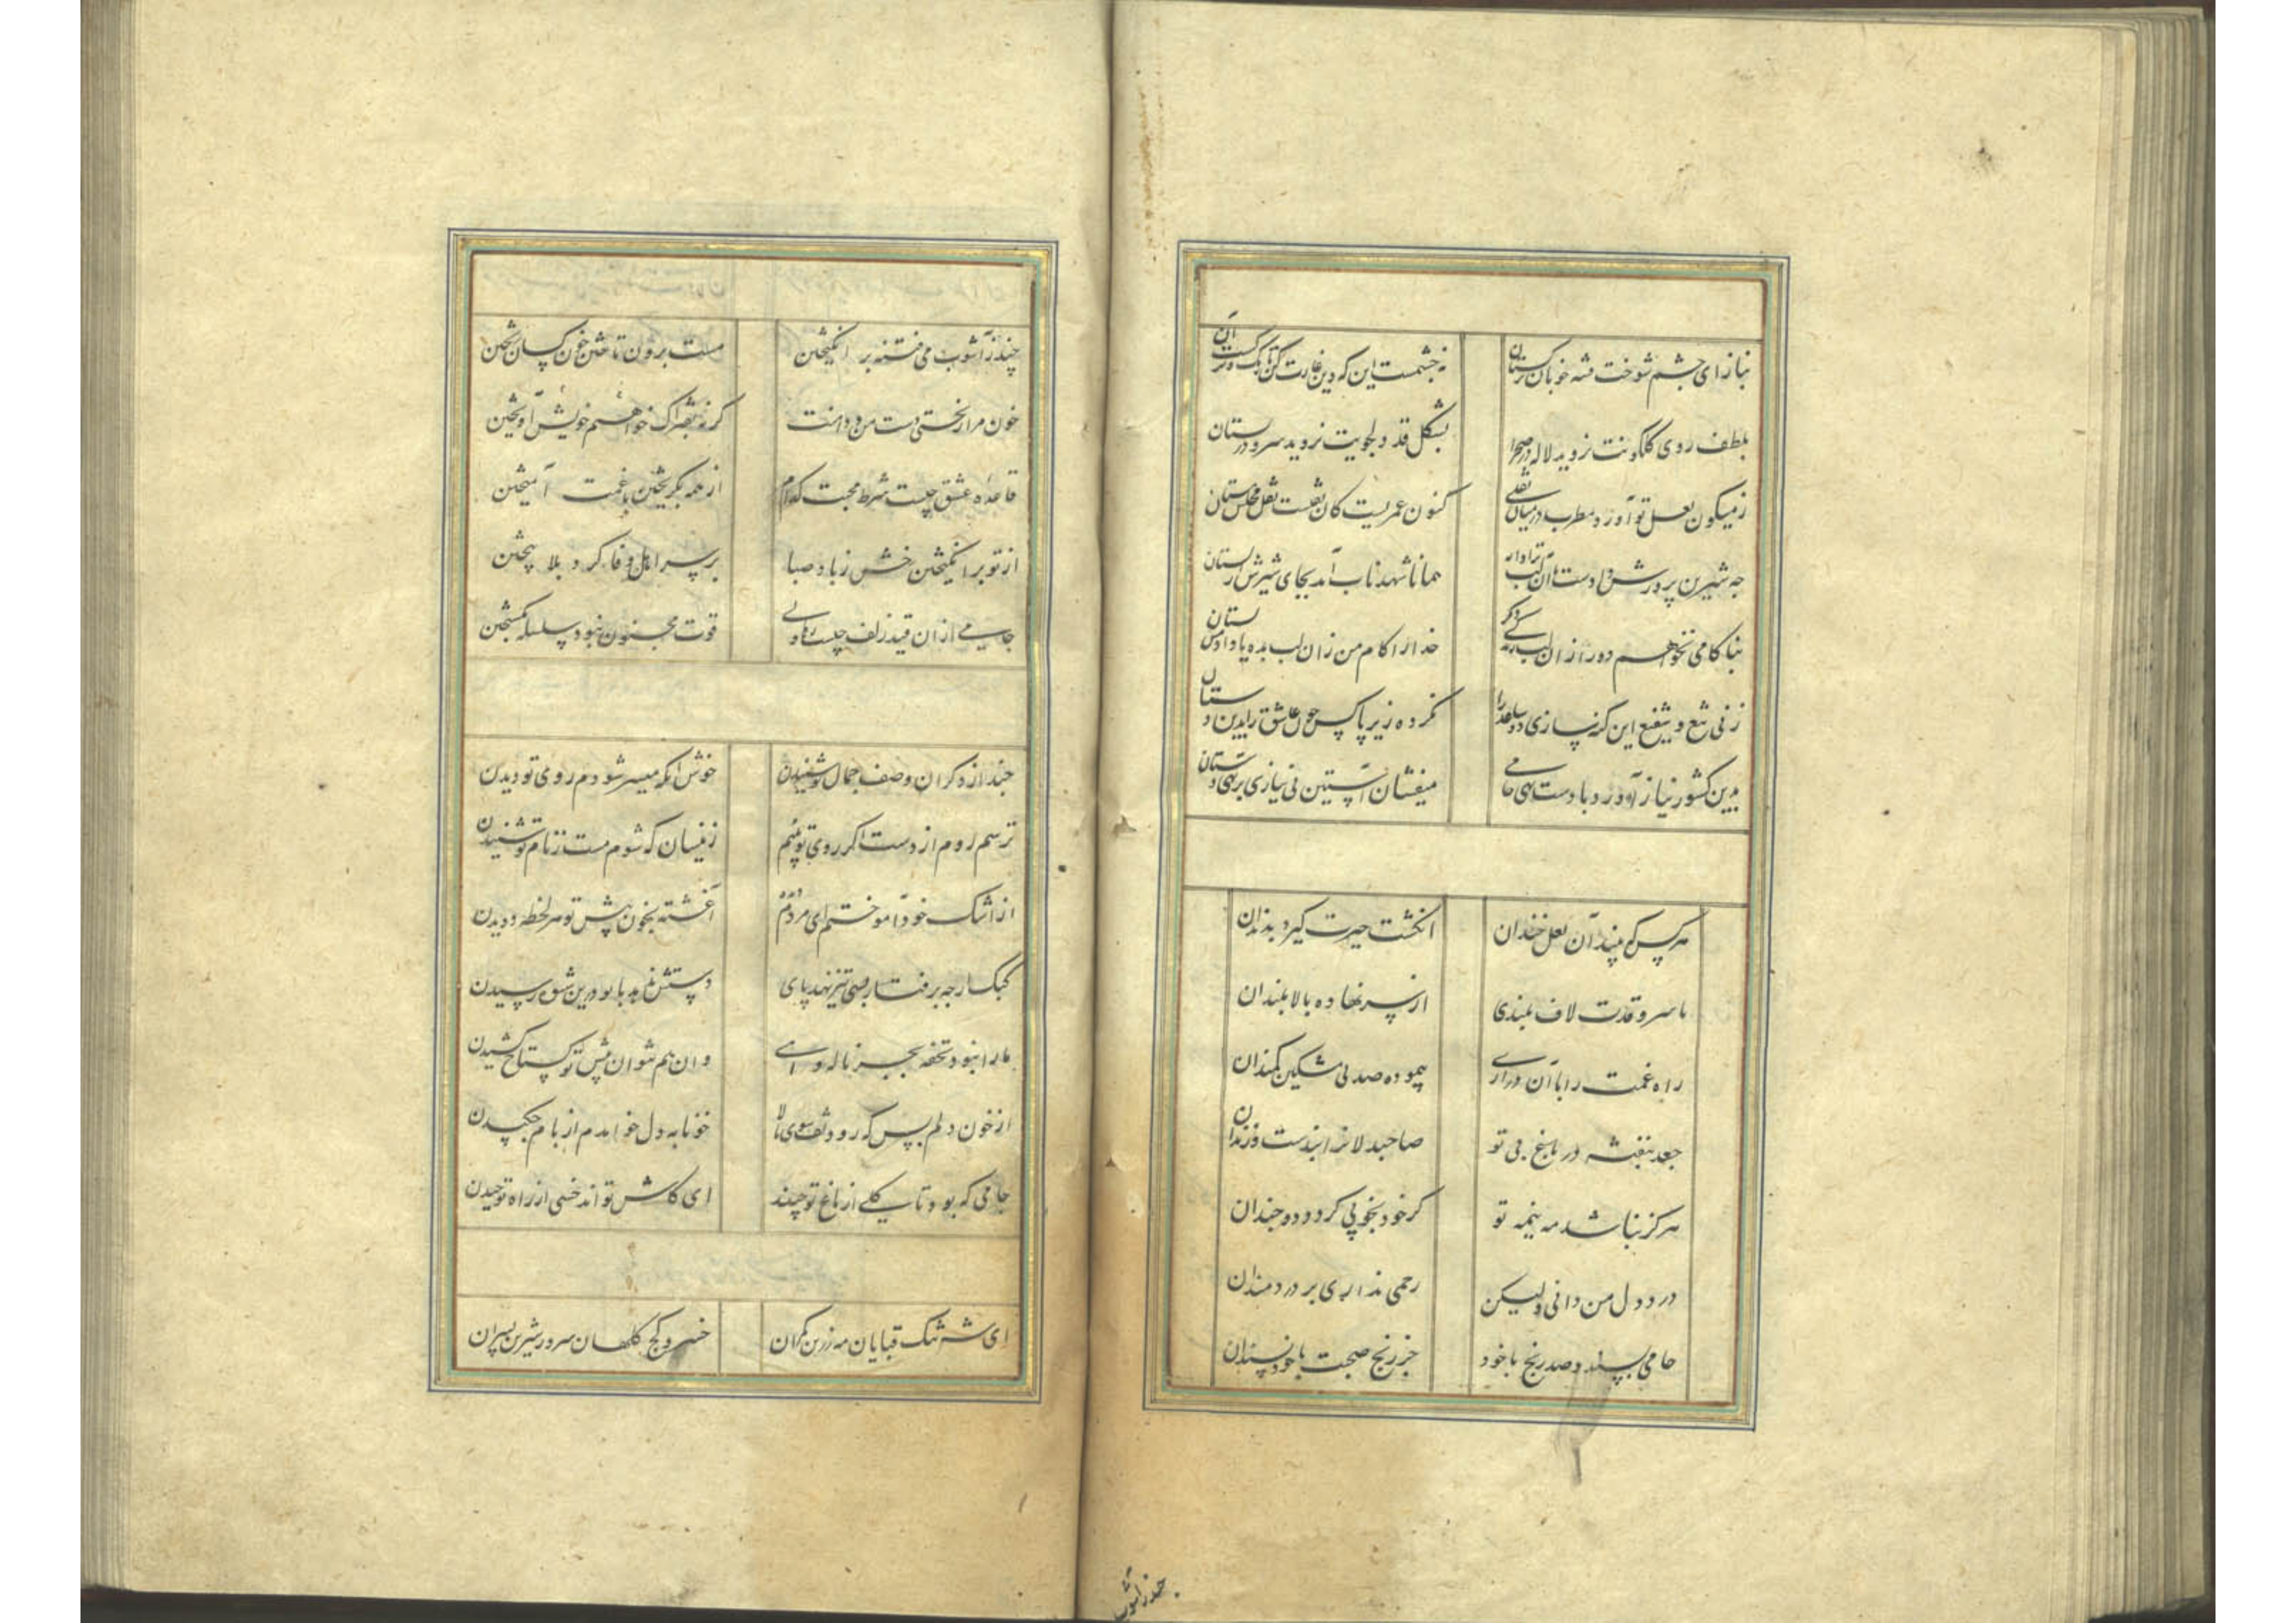 نیاز ای چشم شوخت فتنه خوبان ترکستان نه چشمست این که دین غارت کن
بلطف روی گلگونت نروید لاله در صحرا بشکل قد دلجویت نروید سرو در بستان
ز میگون لعل تو آورد مطرب در میان نقلی کنون عمریست کان نقلست نقل مجلس مستان
چه شیرین پرورش دادست آن لب همانا شهد ناب آمد بجای شیرش از پستان
بناکامی نخواهم دور ازان لب خدا را کام من زان لب بده یا داد من بستان
نکرده زیر پا کس خون عاشق را بدین دستان
بدین کشور نیاز آورد با دست تهی جامی میفشان آستین بی نیازی بر تهی دستان
هر کس که بیند آن لعل خندان انگشت حیرت گیرد بدندان
با سرو قدت لاف بلندی از سر نهاده بالا بلندان
راه غمت را با آن درازی پیموده صد پی مشکین کمندان
جعد بنفشه در باغ بی تو صاحبدلانرا بندست و زندان
هرگز نباشد مه نیمه تو گر خود بخوبی گردد دو چندان
درد دل من دانی ولیکن رحمی نداری بر دردمندان
جامی پسندد صد رنج با خود جز رنج صحبت با خودپسندان
چند ز آشوب می فتنه بر انگیختن مست برون تاختن خون کسان ریختن
خون مرا ریختی دست من و دامنت گر نه بفتراک خواهم خویش آویختن
قاعده عشق چیست شرط محبت کدام از همه بگریختن با غمت آمیختن
از تو بر انگیختن رخش ز باد صبا بر سر اهل وفا گرد بلا بیختن
جامی ازان قید زلف چیست رهاء دلی قوت مجنون نبود سلسله بگسیختن
چند از دگران وصف جمال تو شنیدن خوش آنکه میسر شودم روی تو دیدن
ترسم روم از دست اگر روی تو بینم زینسان که شوم مست ز نام تو شنیدن
از اشک خود آموختم ای مردم دیده آغشته بخون پیش تو هر لحظه دویدن
کبک ارچه برفتار بسی تیز نهد پای دستش ندهد با تو درین شیوه رسیدن
ما را نبود تحفه بجز ناله و آهی وان هم نتوان پیش تو گستاخ کشیدن
از خون دلم بس که رود تف سوی بالا خونابه دل خواهدم از بام چکیدن
جامی که بود تا گلی از باغ تو چیند ای کاش تواند خسی از راه تو چیدن
ای شه تنگ قبایان مه زرین کمران خسرو کج کلهان سرور شیرین پسران
چند ز آشوب